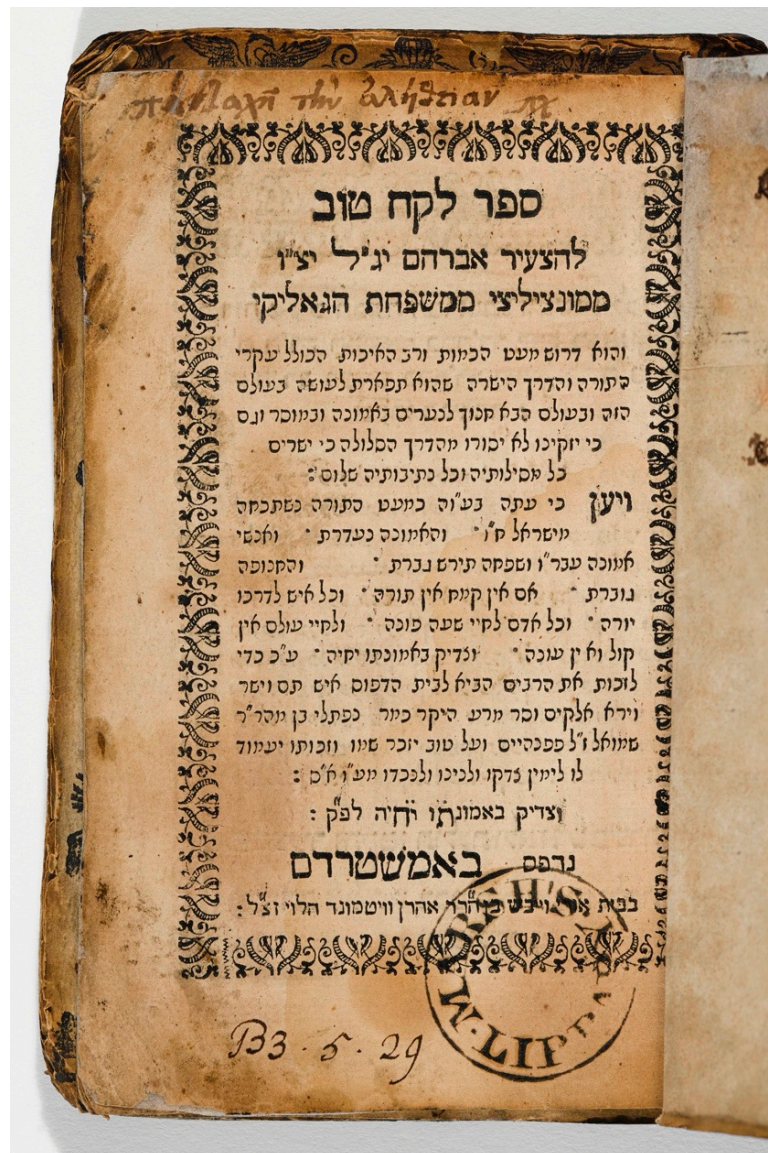 παντ αχῆ τὴν ἀλήθειαν
ספר לקח טוב
להצעיר אברהם יג״ל יצ״ו
ממונציליצי ממשפחת הגאליקי
והוא דרוש מעט הכמות ורב האיכות הכולל עקרי
התורה והדרך הישרה שהוא תפארת לעושה בעולם
הזה ובעולם הבא חנוך לנערים באמונה ובמוסר וגם
כי יזקינו לא יסורו מהדרך הסלולה כי ישרים
כל מסילותיה וכל נתיבותיה שלום :
ויען כי עתה בע״וה כמעט התורה נשתכחה
מישראל ח״ו · והאמונה נעדרת · ואנשי
אמונה עבר״ו ושפחה תירש גברת · והחנופה
גוברת · אם אין קמח אין תורה · וכל איש לדרכו
יורה · וכל אדם לחיי שעה פונה · ולחיי עולם אין
קול ואין עונה · וצדיק באמונתו יחיה · ע״כ כדי
לזכות את הרבים הביא לבית הדפוס איש תם וישר
וירא אלקים וסר מרע היקר כמר נפתלי בן מהר״ר
שמואל ז״ל פפנהיים ועל טוב יזכר שמו וזכותו יעמוד
לו לימין צדקו ולנינו ולנכדו מע״ו א״ס :
וצדיק באמונתו יחיה לפ״ק :
נדפס באמשטרדם
בבית אורי ווייבש בן הר״ר אהרן וויטמונד הלוי זצ״ל :
MARSH'S LIBRARY
B3 · 5 · 29